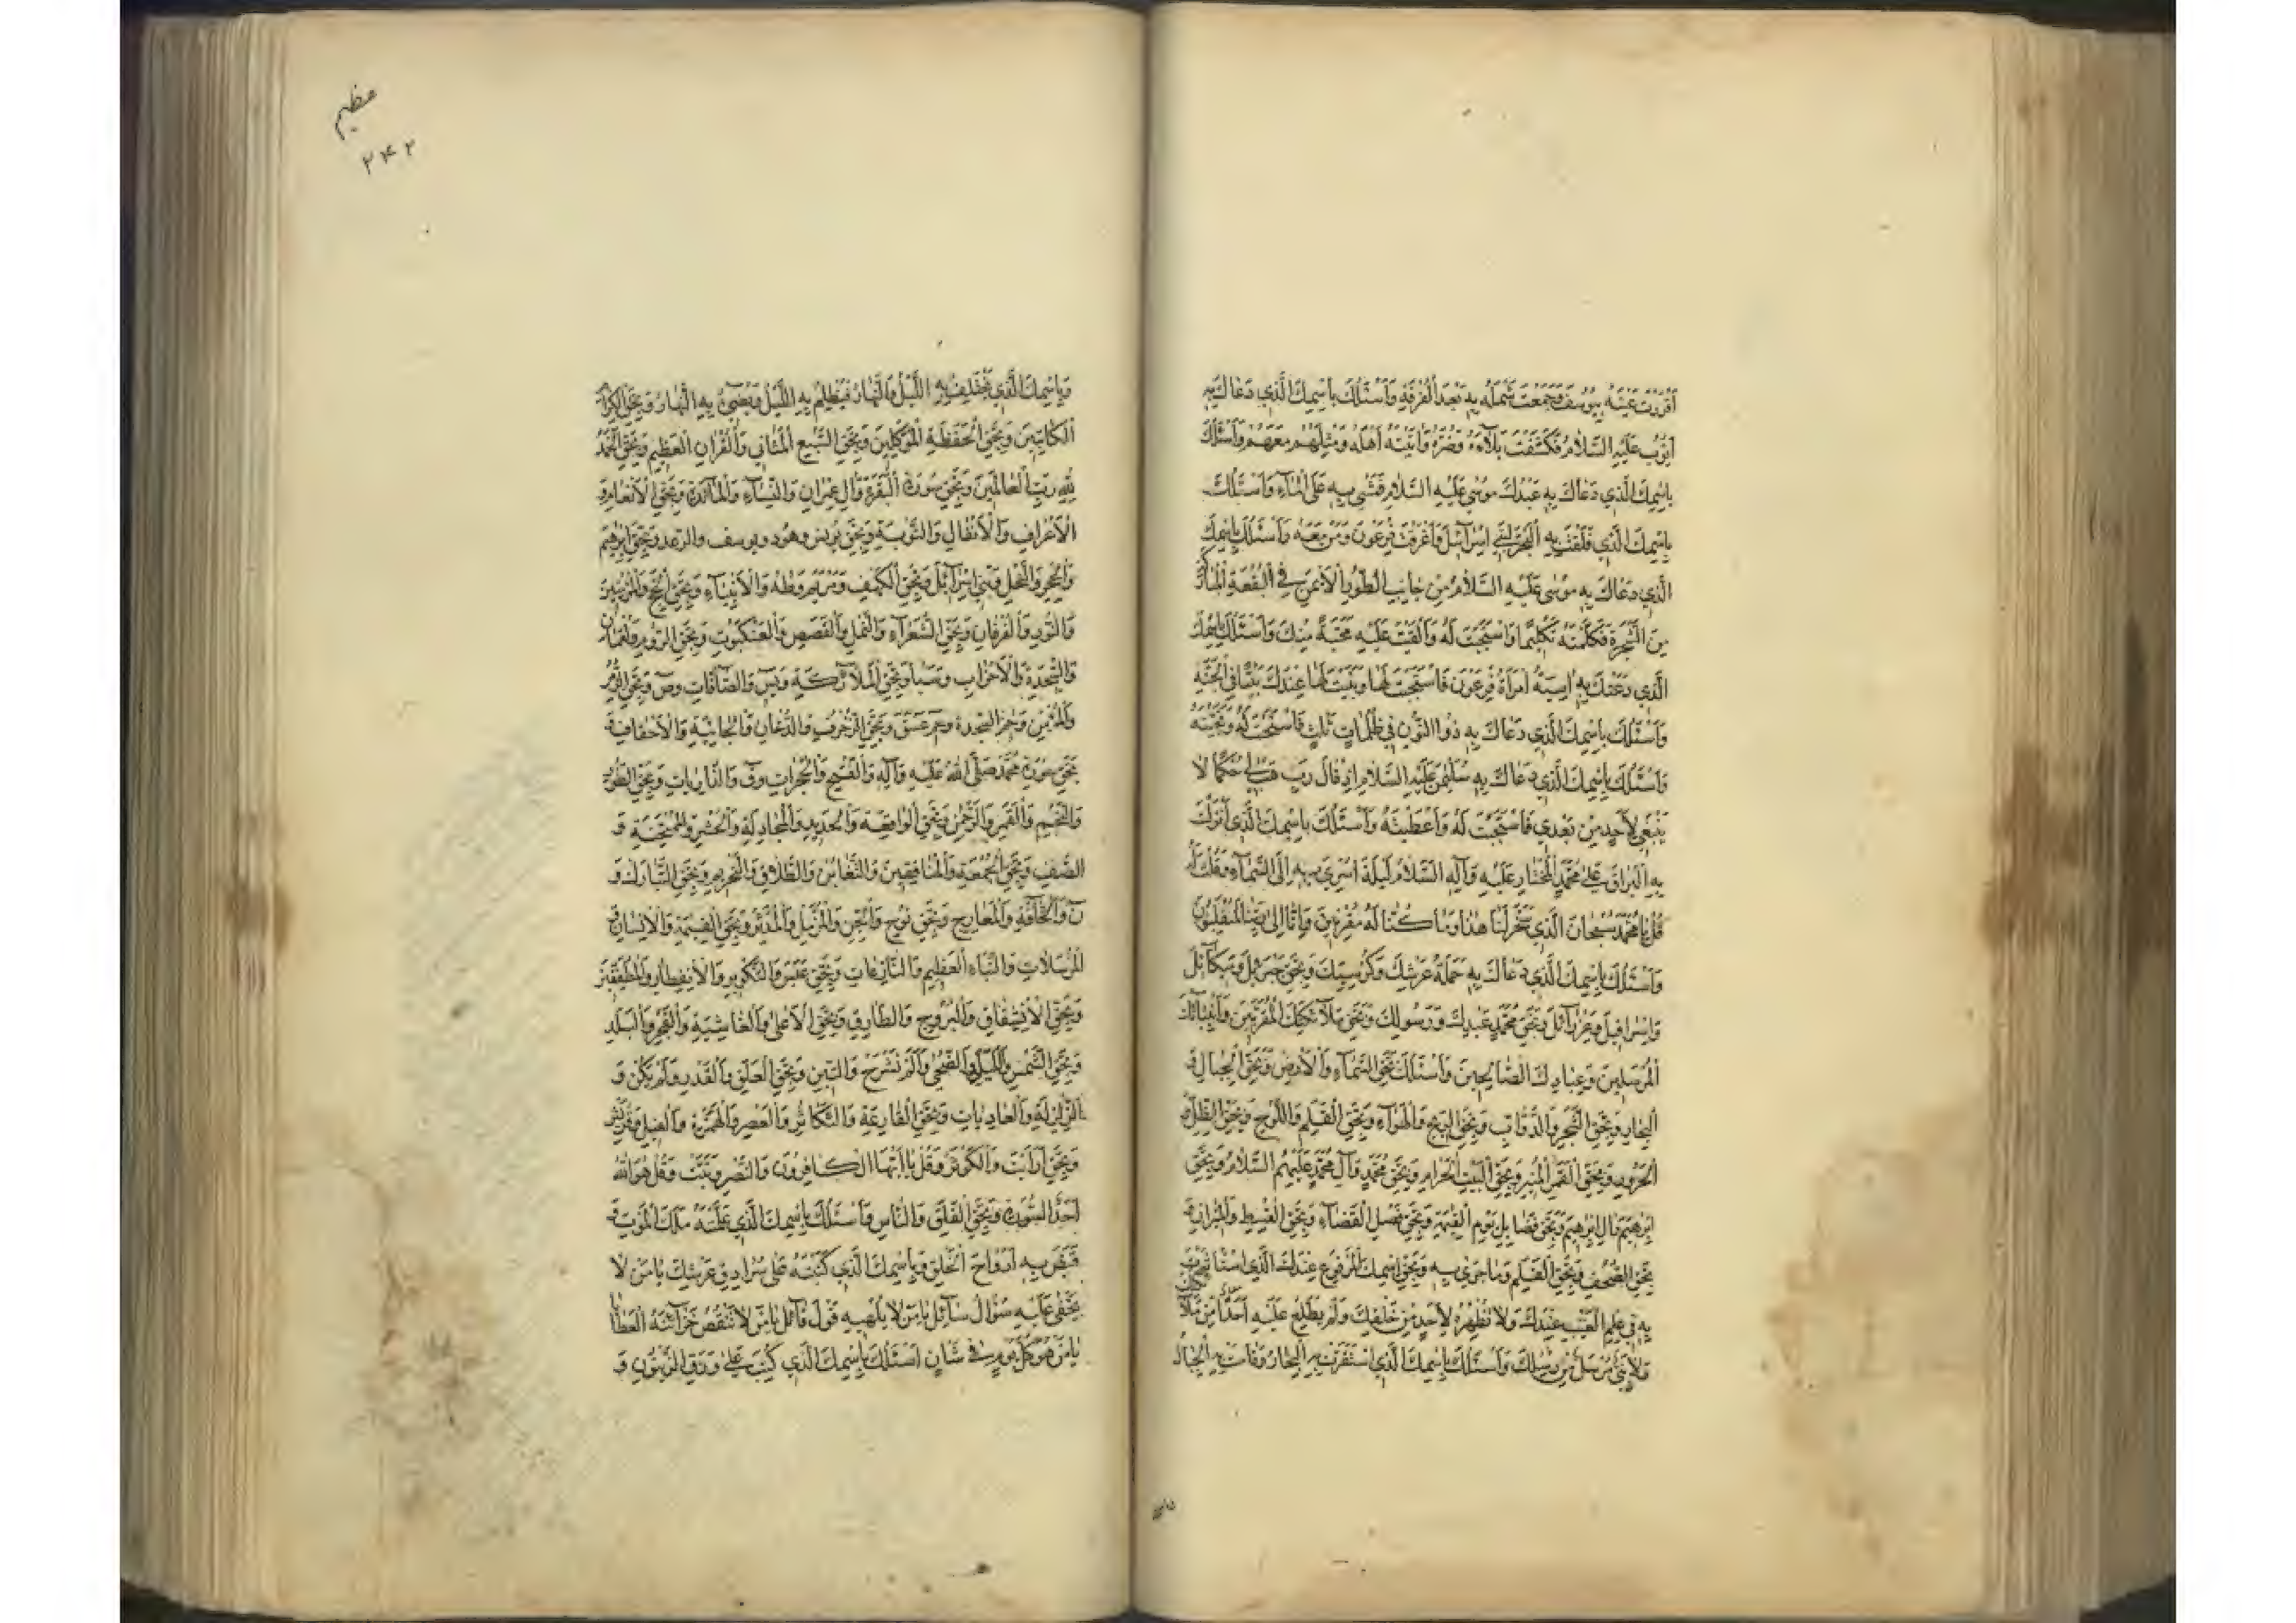 أَقْرَرْتَ عَيْنَهُ بِيُوسُفَ وَجَمَعْتَ شَمْلَهُ بِهِ بَعْدَ الْفُرْقَةِ وَأَسْئَلُكَ بِاسْمِكَ الَّذِي دَعَاكَ بِهِ
أَيُّوبُ عَلَيْهِ السَّلَامُ فَكَشَفْتَ بَلَاءَهُ وَضُرَّهُ وَآتَيْتَهُ أَهْلَهُ وَمِثْلَهُمْ مَعَهُمْ وَأَسْئَلُكَ
بِاسْمِكَ الَّذِي دَعَاكَ بِهِ عَبْدُكَ مُوسَى عَلَيْهِ السَّلَامُ فَمَشَى بِهِ عَلَى الْمَاءِ وَأَسْئَلُكَ
بِاسْمِكَ الَّذِي فَلَقْتَ بِهِ الْبَحْرَ لِبَنِي إِسْرَآئِيلَ وَأَغْرَقْتَ فِرْعَوْنَ وَمَنْ مَعَهُ وَأَسْئَلُكَ بِاسْمِكَ
الَّذِي دَعَاكَ بِهِ مُوسَى عَلَيْهِ السَّلَامُ مِنْ جَانِبِ الطُّورِ الْأَيْمَنِ فِي الْبُقْعَةِ الْمُبَارَكَةِ
مِنَ الشَّجَرَةِ فَكَلَّمْتَهُ تَكْلِيمًا وَاسْتَجَبْتَ لَهُ وَأَلْقَيْتَ عَلَيْهِ مَحَبَّةً مِنْكَ وَأَسْئَلُكَ بِاسْمِكَ
الَّذِي دَعَتْكَ بِهِ آسِيَةُ امْرَأَةُ فِرْعَوْنَ فَاسْتَجَبْتَ لَهَا وَبَنَيْتَ لَهَا عِنْدَكَ بَيْتًا فِي الْجَنَّةِ
وَأَسْئَلُكَ بِاسْمِكَ الَّذِي دَعَاكَ بِهِ ذُوا النُّونِ فِي ظُلُمَاتٍ ثَلَثٍ فَاسْتَجَبْتَ لَهُ وَنَجَّيْتَهُ
وَأَسْئَلُكَ بِاسْمِكَ الَّذِي دَعَاكَ بِهِ سُلَيْمَنُ عَلَيْهِ السَّلَامُ إِذْ قَالَ رَبِّ هَبْ لِي حُكْمًا لَا
يَنْبَغِي لِأَحَدٍ مِنْ بَعْدِي فَاسْتَجَبْتَ لَهُ وَأَعْطَيْتَهُ وَأَسْئَلُكَ بِاسْمِكَ الَّذِي أَنْزَلْتَ
بِهِ الْبُرَاقَ عَلَى مُحَمَّدٍ الْمُخْتَارِ عَلَيْهِ وَآلِهِ السَّلَامُ لَيْلَةَ أُسْرِيَ بِهِ إِلَى السَّمَآءِ وَقُلْتَ لَهُ
قُلْ يَا مُحَمَّدُ سُبْحَانَ الَّذِي سَخَّرَ لَنَا هَذَا وَمَا كُنَّا لَهُ مُقْرِنِينَ وَإِنَّا إِلَى رَبِّنَا لَمُنْقَلِبُونَ
وَأَسْئَلُكَ بِاسْمِكَ الَّذِي دَعَاكَ بِهِ حَمَلَةُ عَرْشِكَ وَكُرْسِيِّكَ وَبِحَقِّ جَبْرَئِيلَ وَمِيكَآئِيلَ
وَإِسْرَافِيلَ وَعِزْرَآئِيلَ وَبِحَقِّ مُحَمَّدٍ عَبْدِكَ وَرَسُولِكَ وَبِحَقِّ مَلَآئِكَتِكَ الْمُقَرَّبِينَ وَأَنْبِيَآئِكَ
الْمُرْسَلِينَ وَعِبَادِكَ الصَّالِحِينَ وَأَسْئَلُكَ بِحَقِّ السَّمَآءِ وَالْأَرْضِ وَبِحَقِّ الْجِبَالِ وَ
الْبِحَارِ وَبِحَقِّ الشَّجَرِ وَالدَّوَآبِّ وَبِحَقِّ الرِّيحِ وَالْهَوَآءِ وَبِحَقِّ الْقَلَمِ وَاللَّوْحِ وَبِحَقِّ الظِّلِّ وَ
الْحَرُورِ وَبِحَقِّ الْقَمَرِ الْمُنِيرِ وَبِحَقِّ الْبَيْتِ الْحَرَامِ وَبِحَقِّ مُحَمَّدٍ وَآلِ مُحَمَّدٍ عَلَيْهِمُ السَّلَامُ وَبِحَقِّ
إِبْرَهِيمَ وَآلِ إِبْرَهِيمَ وَبِحَقِّ فَضَايِلِ يَوْمِ الْقِيَمَةِ وَبِحَقِّ فَصْلِ الْقَضَآءِ وَبِحَقِّ الْقِسْطِ وَالْمِيزَانِ وَ
بِحَقِّ الصُّحُفِ وَبِحَقِّ الْقَلَمِ وَمَا جَرَى بِهِ وَبِحَقِّ اسْمِكَ الْمَرْفُوعِ عِنْدَكَ الَّذِي اسْتَأْثَرْتَ
بِهِ فِي عِلْمِ الْغَيْبِ عِنْدَكَ وَلَا تُظْهِرُهُ لِأَحَدٍ مِنْ خَلْقِكَ وَلَمْ يَطَّلِعْ عَلَيْهِ أَحَدٌ مِنْ مَلَآئِكَتِكَ
وَلَا نَبِيٌّ مُرْسَلٌ مِنْ رُسُلِكَ وَأَسْئَلُكَ بِاسْمِكَ الَّذِي اسْتَقَرَّتْ بِهِ الْبِحَارُ وَقَامَتْ بِهِ الْجِبَالُ
عظيم
۲۴۲
وَبِاسْمِكَ الَّذِي يَخْتَلِفُ بِهِ اللَّيْلُ وَالنَّهَارُ فَيُظْلِمُ بِهِ اللَّيْلُ وَيُضِيءُ بِهِ النَّهَارُ وَبِحَقِّ الْكِرَامِ
الْكَاتِبِينَ وَبِحَقِّ الْحَفَظَةِ الْمُوَكَّلِينَ وَبِحَقِّ السَّبْعِ الْمَثَانِي وَالْقُرْآنِ الْعَظِيمِ وَبِحَقِّ الْحَمْدُ
لِلَّهِ رَبِّ الْعَالَمِينَ وَبِحَقِّ سُورَةِ الْبَقَرَةِ وَآلِ عِمْرَانَ وَالنِّسَآءِ وَالْمَآئِدَةِ وَبِحَقِّ الْأَنْعَامِ وَ
الْأَعْرَافِ وَالْأَنْفَالِ وَالتَّوْبَةِ وَبِحَقِّ يُونُسَ وَهُودٍ وَيُوسُفَ وَالرَّعْدِ وَبِحَقِّ إِبْرَهِيمَ
وَالْحِجْرِ وَالنَّحْلِ وَبَنِي إِسْرَآئِيلَ وَبِحَقِّ الْكَهْفِ وَمَرْيَمَ وَطَهَ وَالْأَنْبِيَآءِ وَبِحَقِّ الْحَجِّ وَالْمُؤْمِنِينَ
وَالنُّورِ وَالْفُرْقَانِ وَبِحَقِّ الشُّعَرَآءِ وَالنَّمْلِ وَالْقَصَصِ وَالْعَنْكَبُوتِ وَبِحَقِّ الرُّومِ وَلُقْمَانَ
وَالسَّجْدَةِ وَالْأَحْزَابِ وَسَبَأٍ وَبِحَقِّ الْمَلَآئِكَةِ وَيس وَالصَّآفَّاتِ وَص وَبِحَقِّ الزُّمَرِ
وَالْمُؤْمِنِ وَحم السَّجْدَةِ وَحم عسق وَبِحَقِّ الزُّخْرُفِ وَالدُّخَانِ وَالْجَاثِيَةِ وَالْأَحْقَافِ وَ
بِحَقِّ سُورَةِ مُحَمَّدٍ صَلَّى اللَّهُ عَلَيْهِ وَآلِهِ وَالْفَتْحِ وَالْحُجُرَاتِ وَق وَالذَّارِيَاتِ وَبِحَقِّ الطُّورِ
وَالنَّجْمِ وَالْقَمَرِ وَالرَّحْمَنِ وَبِحَقِّ الْوَاقِعَةِ وَالْحَدِيدِ وَالْمُجَادِلَةِ وَالْحَشْرِ وَالْمُمْتَحِنَةِ وَ
الصَّفِّ وَبِحَقِّ الْجُمُعَةِ وَالْمُنَافِقِينَ وَالتَّغَابُنِ وَالطَّلَاقِ وَالتَّحْرِيمِ وَبِحَقِّ التَّبَارَكَ وَ
ن وَالْحَاقَّةِ وَالْمَعَارِجِ وَبِحَقِّ نُوحٍ وَالْجِنِّ وَالْمُزَّمِّلِ وَالْمُدَّثِّرِ وَبِحَقِّ الْقِيَمَةِ وَالْإِنْسَانِ وَ
الْمُرْسَلَاتِ وَالنَّبَاءِ الْعَظِيمِ وَالنَّازِعَاتِ وَبِحَقِّ عَبَسَ وَالتَّكْوِيرِ وَالْإِنْفِطَارِ وَالْمُطَفِّفِينَ
وَبِحَقِّ الْإِنْشِقَاقِ وَالْبُرُوجِ وَالطَّارِقِ وَبِحَقِّ الْأَعْلَى وَالْغَاشِيَةِ وَالْفَجْرِ وَالْبَلَدِ
وَبِحَقِّ الشَّمْسِ وَاللَّيْلِ وَالضُّحَى وَأَلَمْ نَشْرَحْ وَالتِّينِ وَبِحَقِّ الْعَلَقِ وَالْقَدْرِ وَلَمْ يَكُنْ وَ
الزَّلْزَلَةِ وَالْعَادِيَاتِ وَبِحَقِّ الْقَارِعَةِ وَالتَّكَاثُرِ وَالْعَصْرِ وَالْهُمَزَةِ وَالْفِيلِ وَقُرَيْشٍ
وَبِحَقِّ أَرَأَيْتَ وَالْكَوْثَرِ وَقُلْ يَا أَيُّهَا الْكَافِرُونَ وَالنَّصْرِ وَتَبَّتْ وَقُلْ هُوَ اللَّهُ
أَحَدٌ السُّورَةِ وَبِحَقِّ الْفَلَقِ وَالنَّاسِ وَأَسْئَلُكَ بِاسْمِكَ الَّذِي عَلَّمْتَهُ مَلَكَ الْمَوْتِ وَ
قَبَضَ بِهِ أَرْوَاحَ الْخَلْقِ وَبِاسْمِكَ الَّذِي كَتَبْتَهُ عَلَى سُرَادِقِ عَرْشِكَ يَا مَنْ لَا
يَخْفَى عَلَيْهِ سُؤَالُ سَآئِلٍ يَا مَنْ لَا يُلْهِيهِ قَوْلُ قَآئِلٍ يَا مَنْ لَا تَنْقُصُ خَزَآئِنَهُ الْعَطَايَا
يَا مَنْ هُوَ كُلَّ يَوْمٍ فِي شَأْنٍ أَسْئَلُكَ بِاسْمِكَ الَّذِي كُتِبَ عَلَى وَرَقِ الزَّيْتُونِ وَ